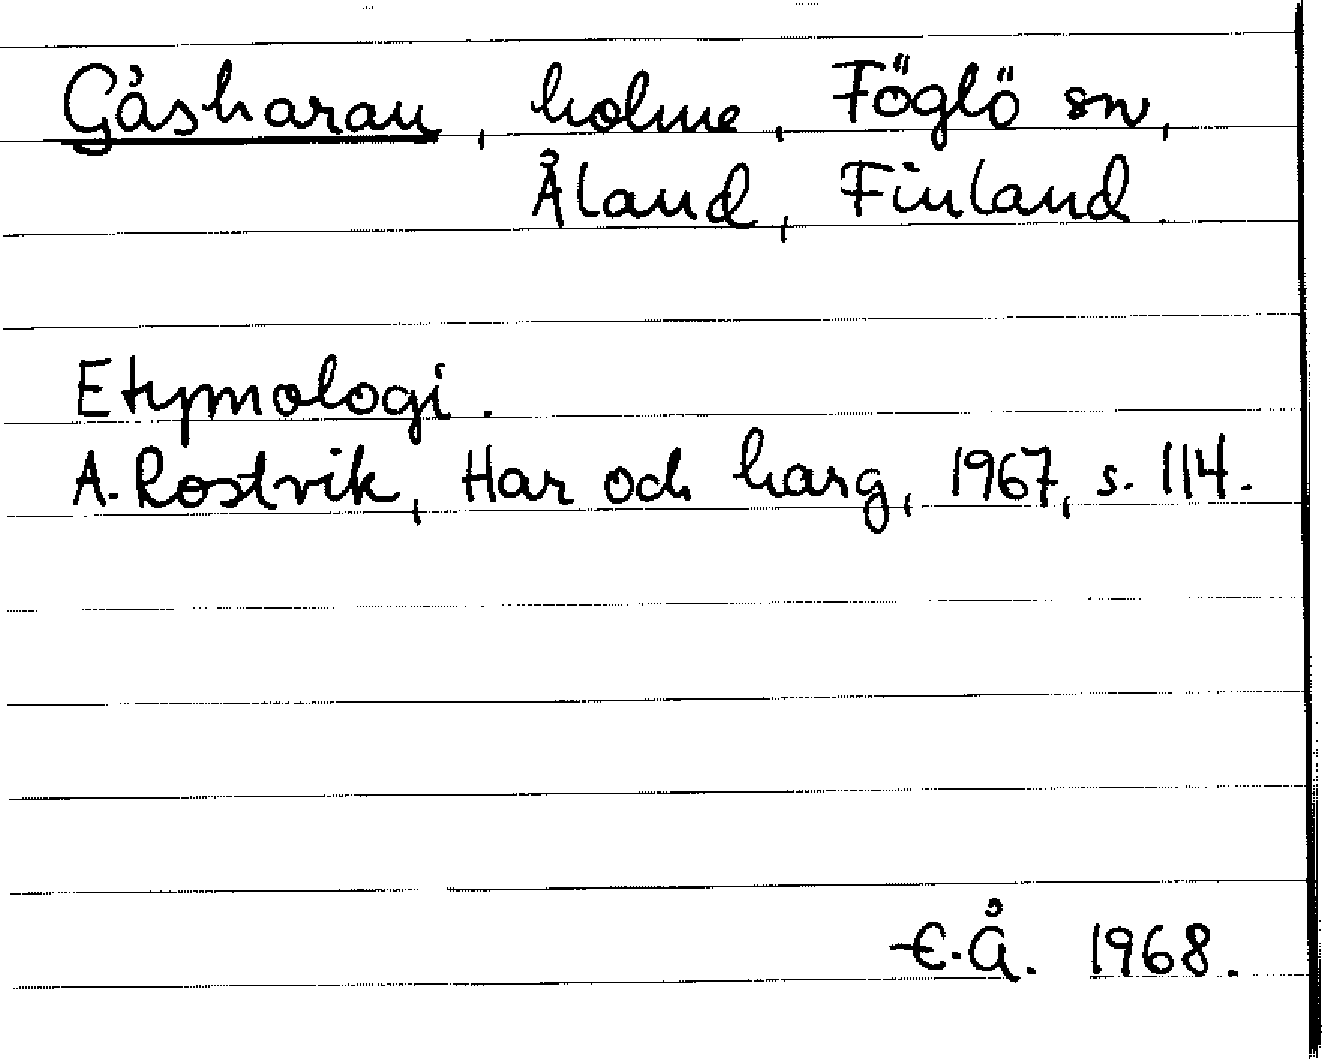 Gåsharan, holme, Föglö sn,
Åland, Finland.
Etymologi.
A. Rostvik, Har och harg, 1967, s. 114.
E.Å. 1968.